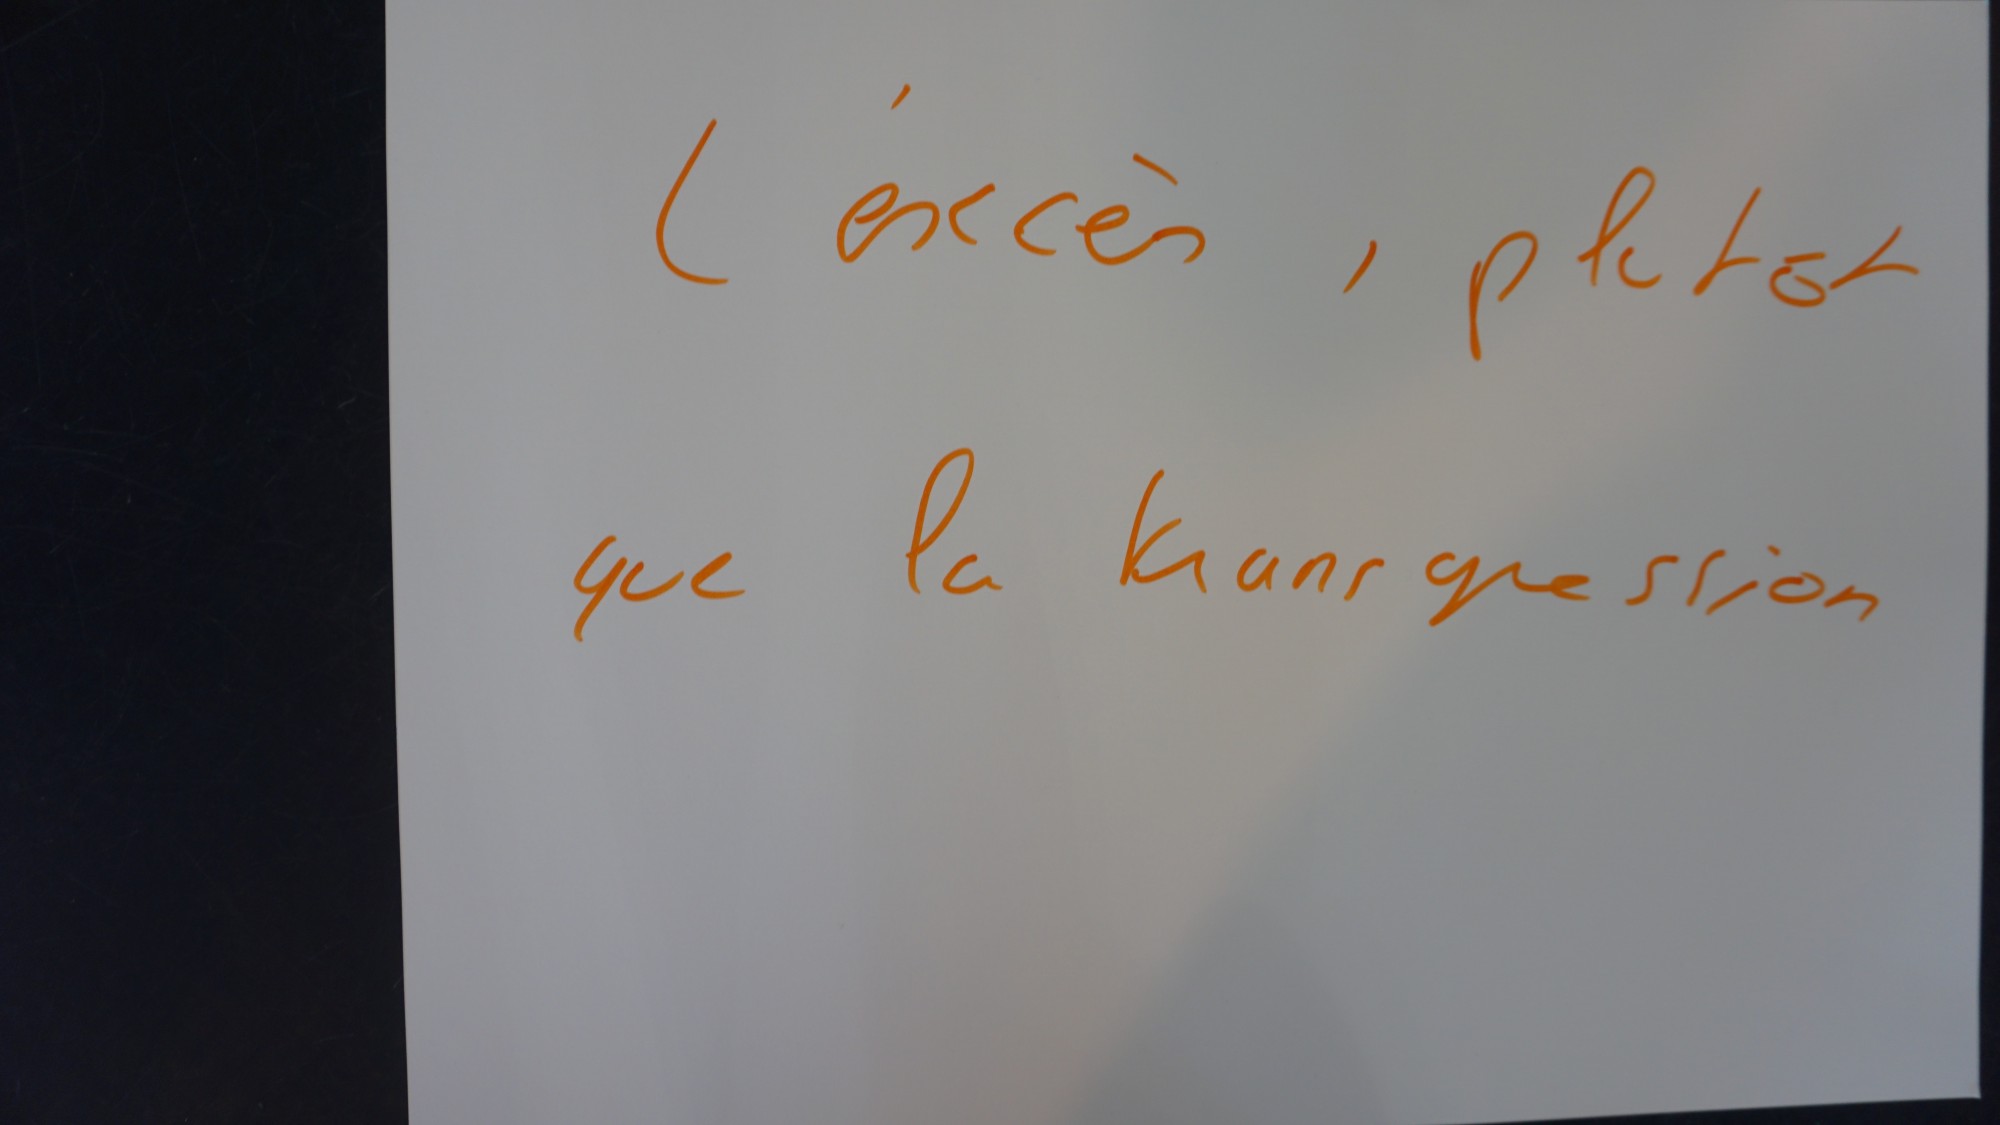 L'excès, plutôt
que la transgression